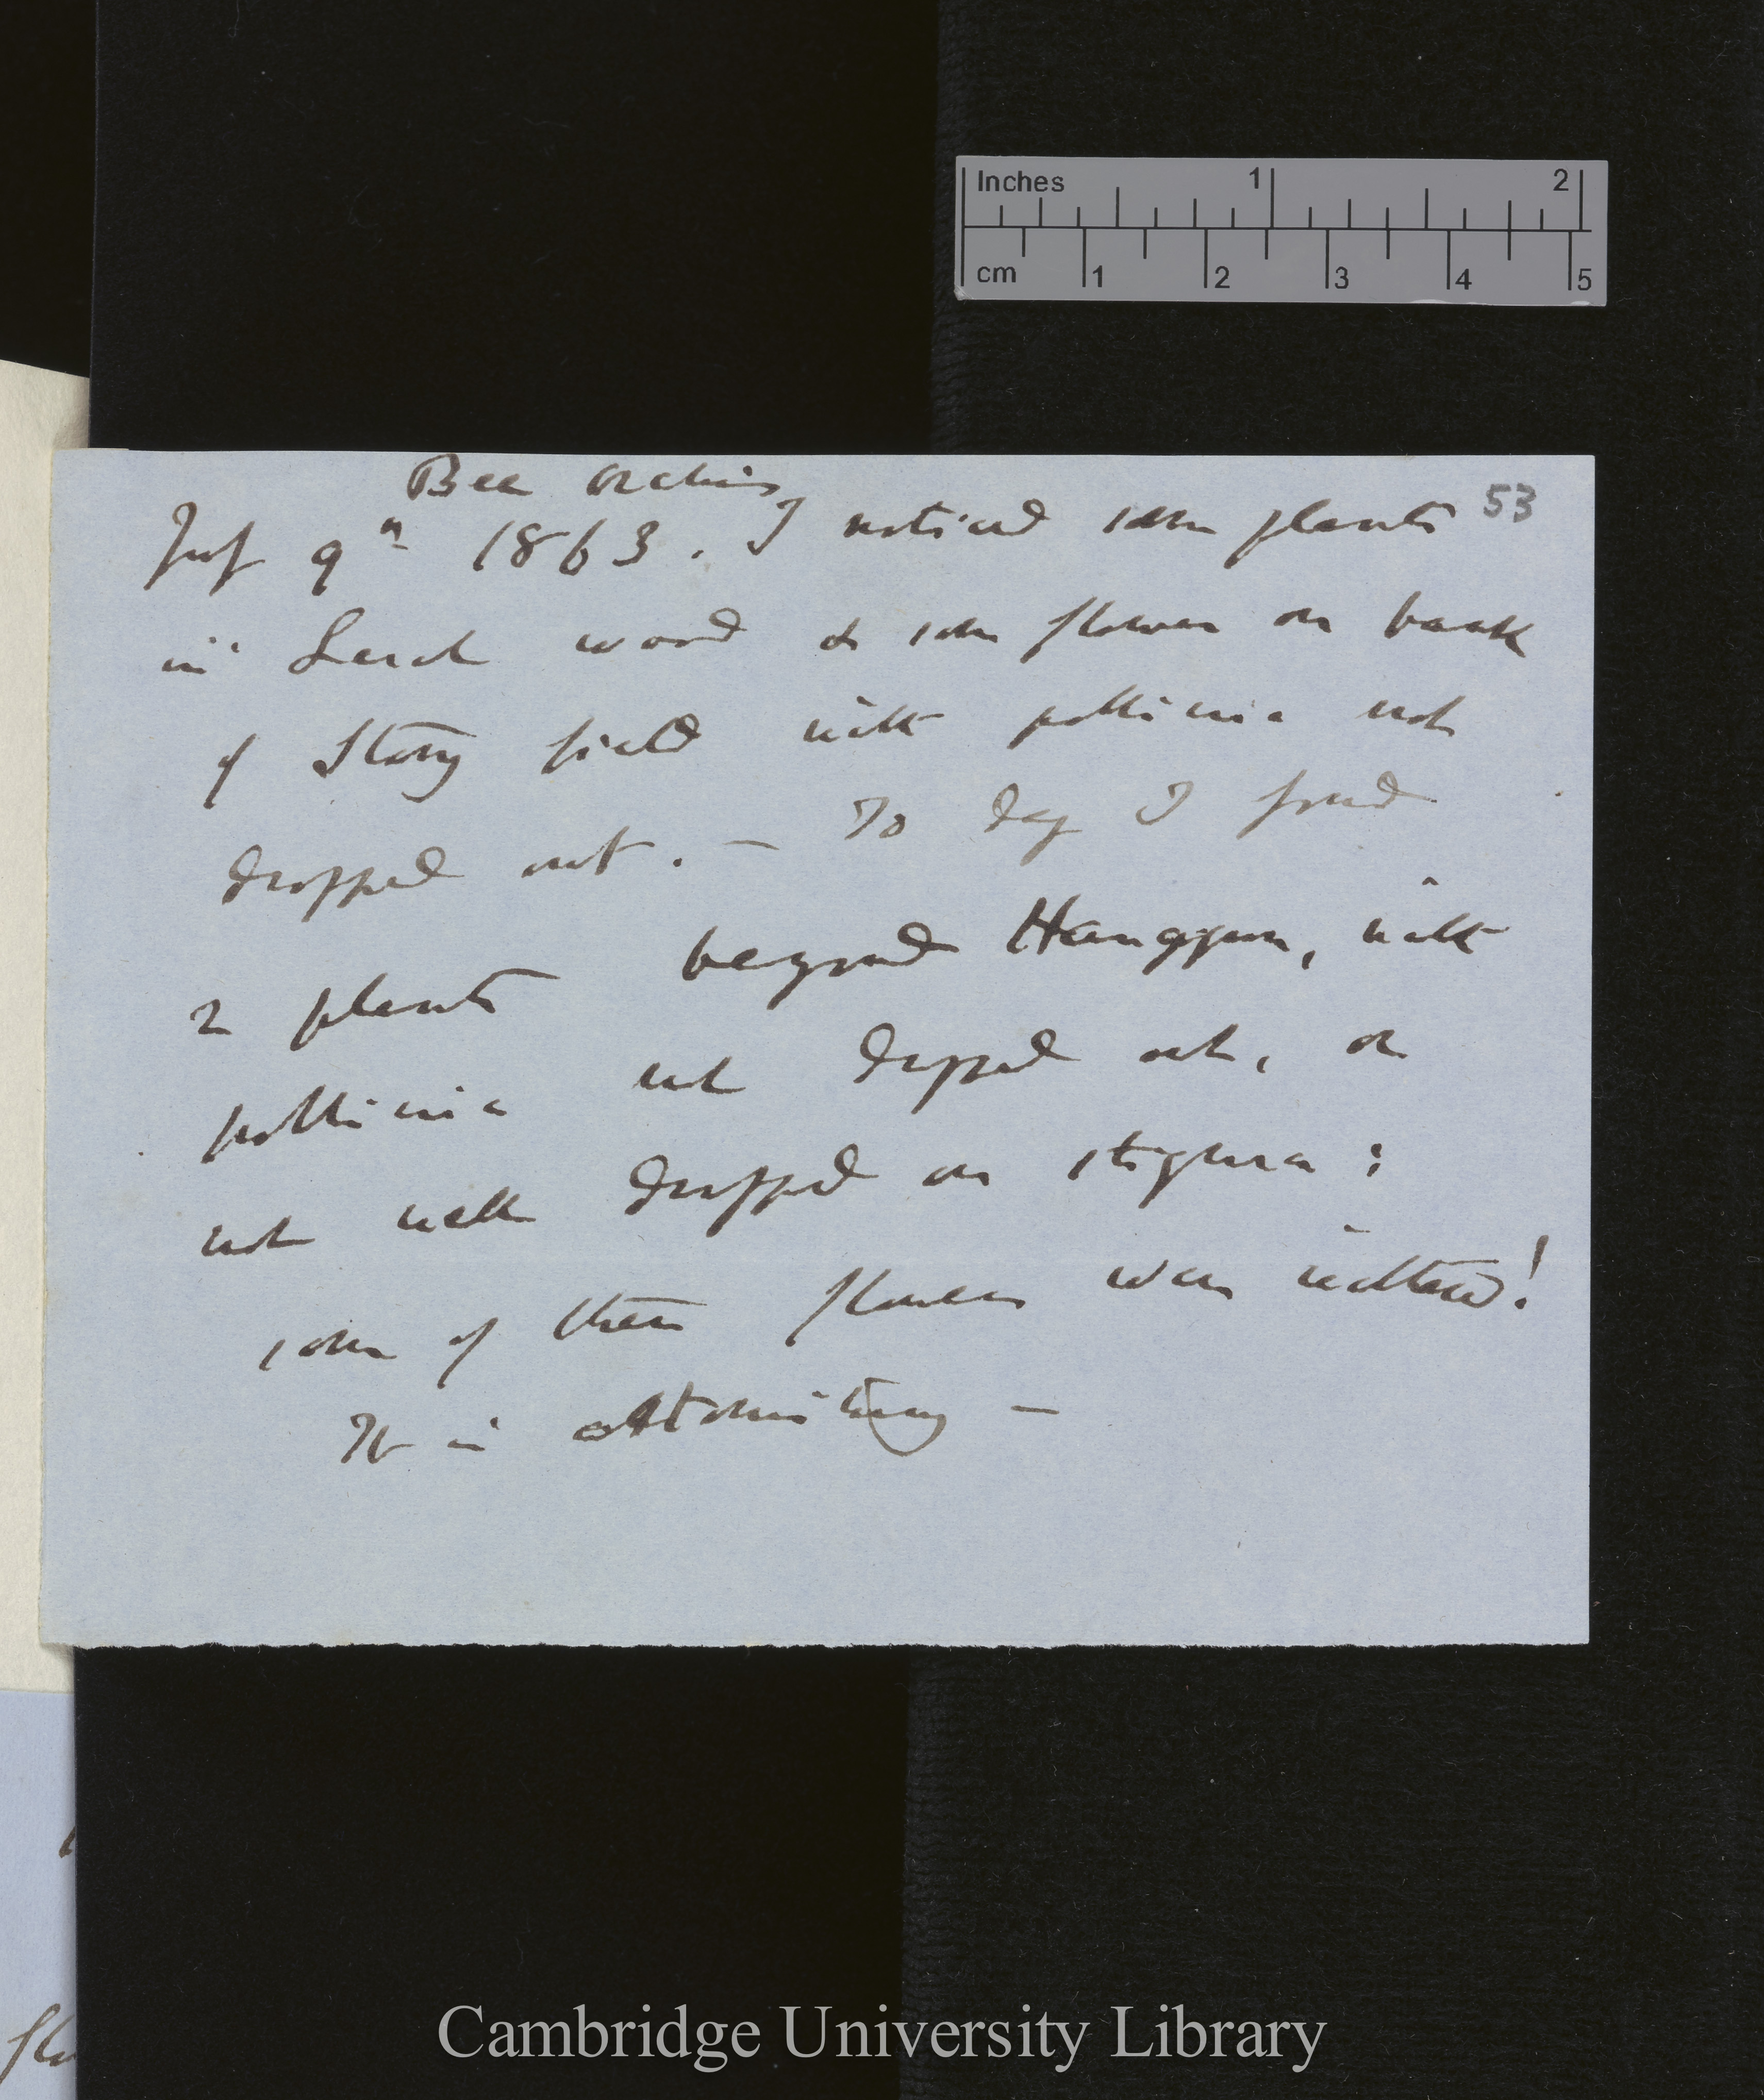 Inches 1 2
cm 1 2 3 4 5
53
Bee Orchis
July 9th 1863. I noticed some plants
in Larch wood & some flowers on bank
of Stony field with pollinia not
dropped out. — To day I found
2 plants beyond Hanggrove, with
pollinia not dropped out, or
not well dropped on stigma;
some of these flowers were withered!
It is astonishing —
Cambridge University Library